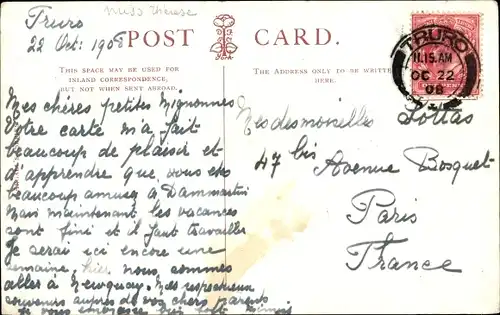 Miss
Truro
22 Oct: 1908
POST CARD.
THIS SPACE MAY BE USED FOR
INLAND CORRESPONDENCE,
BUT NOT WHEN SENT ABROAD.
THE ADDRESS ONLY TO BE WRITTEN
HERE.
TRURO
11.15.AM
OC 22
08
Mes chères petites Mignonnes
Votre carte m'a fait
beaucoup de plaisir et
d'apprendre que vous êtes
beaucoup amusez a Dammartin
Mais maintenant les vacances
sont fini et il faut travailler
Je serai ici encore une
semaine, hier nous sommes
aller à Newquay. Mes respectueux
souvenirs auprès de vos chers parents
Je vous embrasse
Mesdesmoiselles Lottas
47 bis Avenue Bosquet
Paris
France